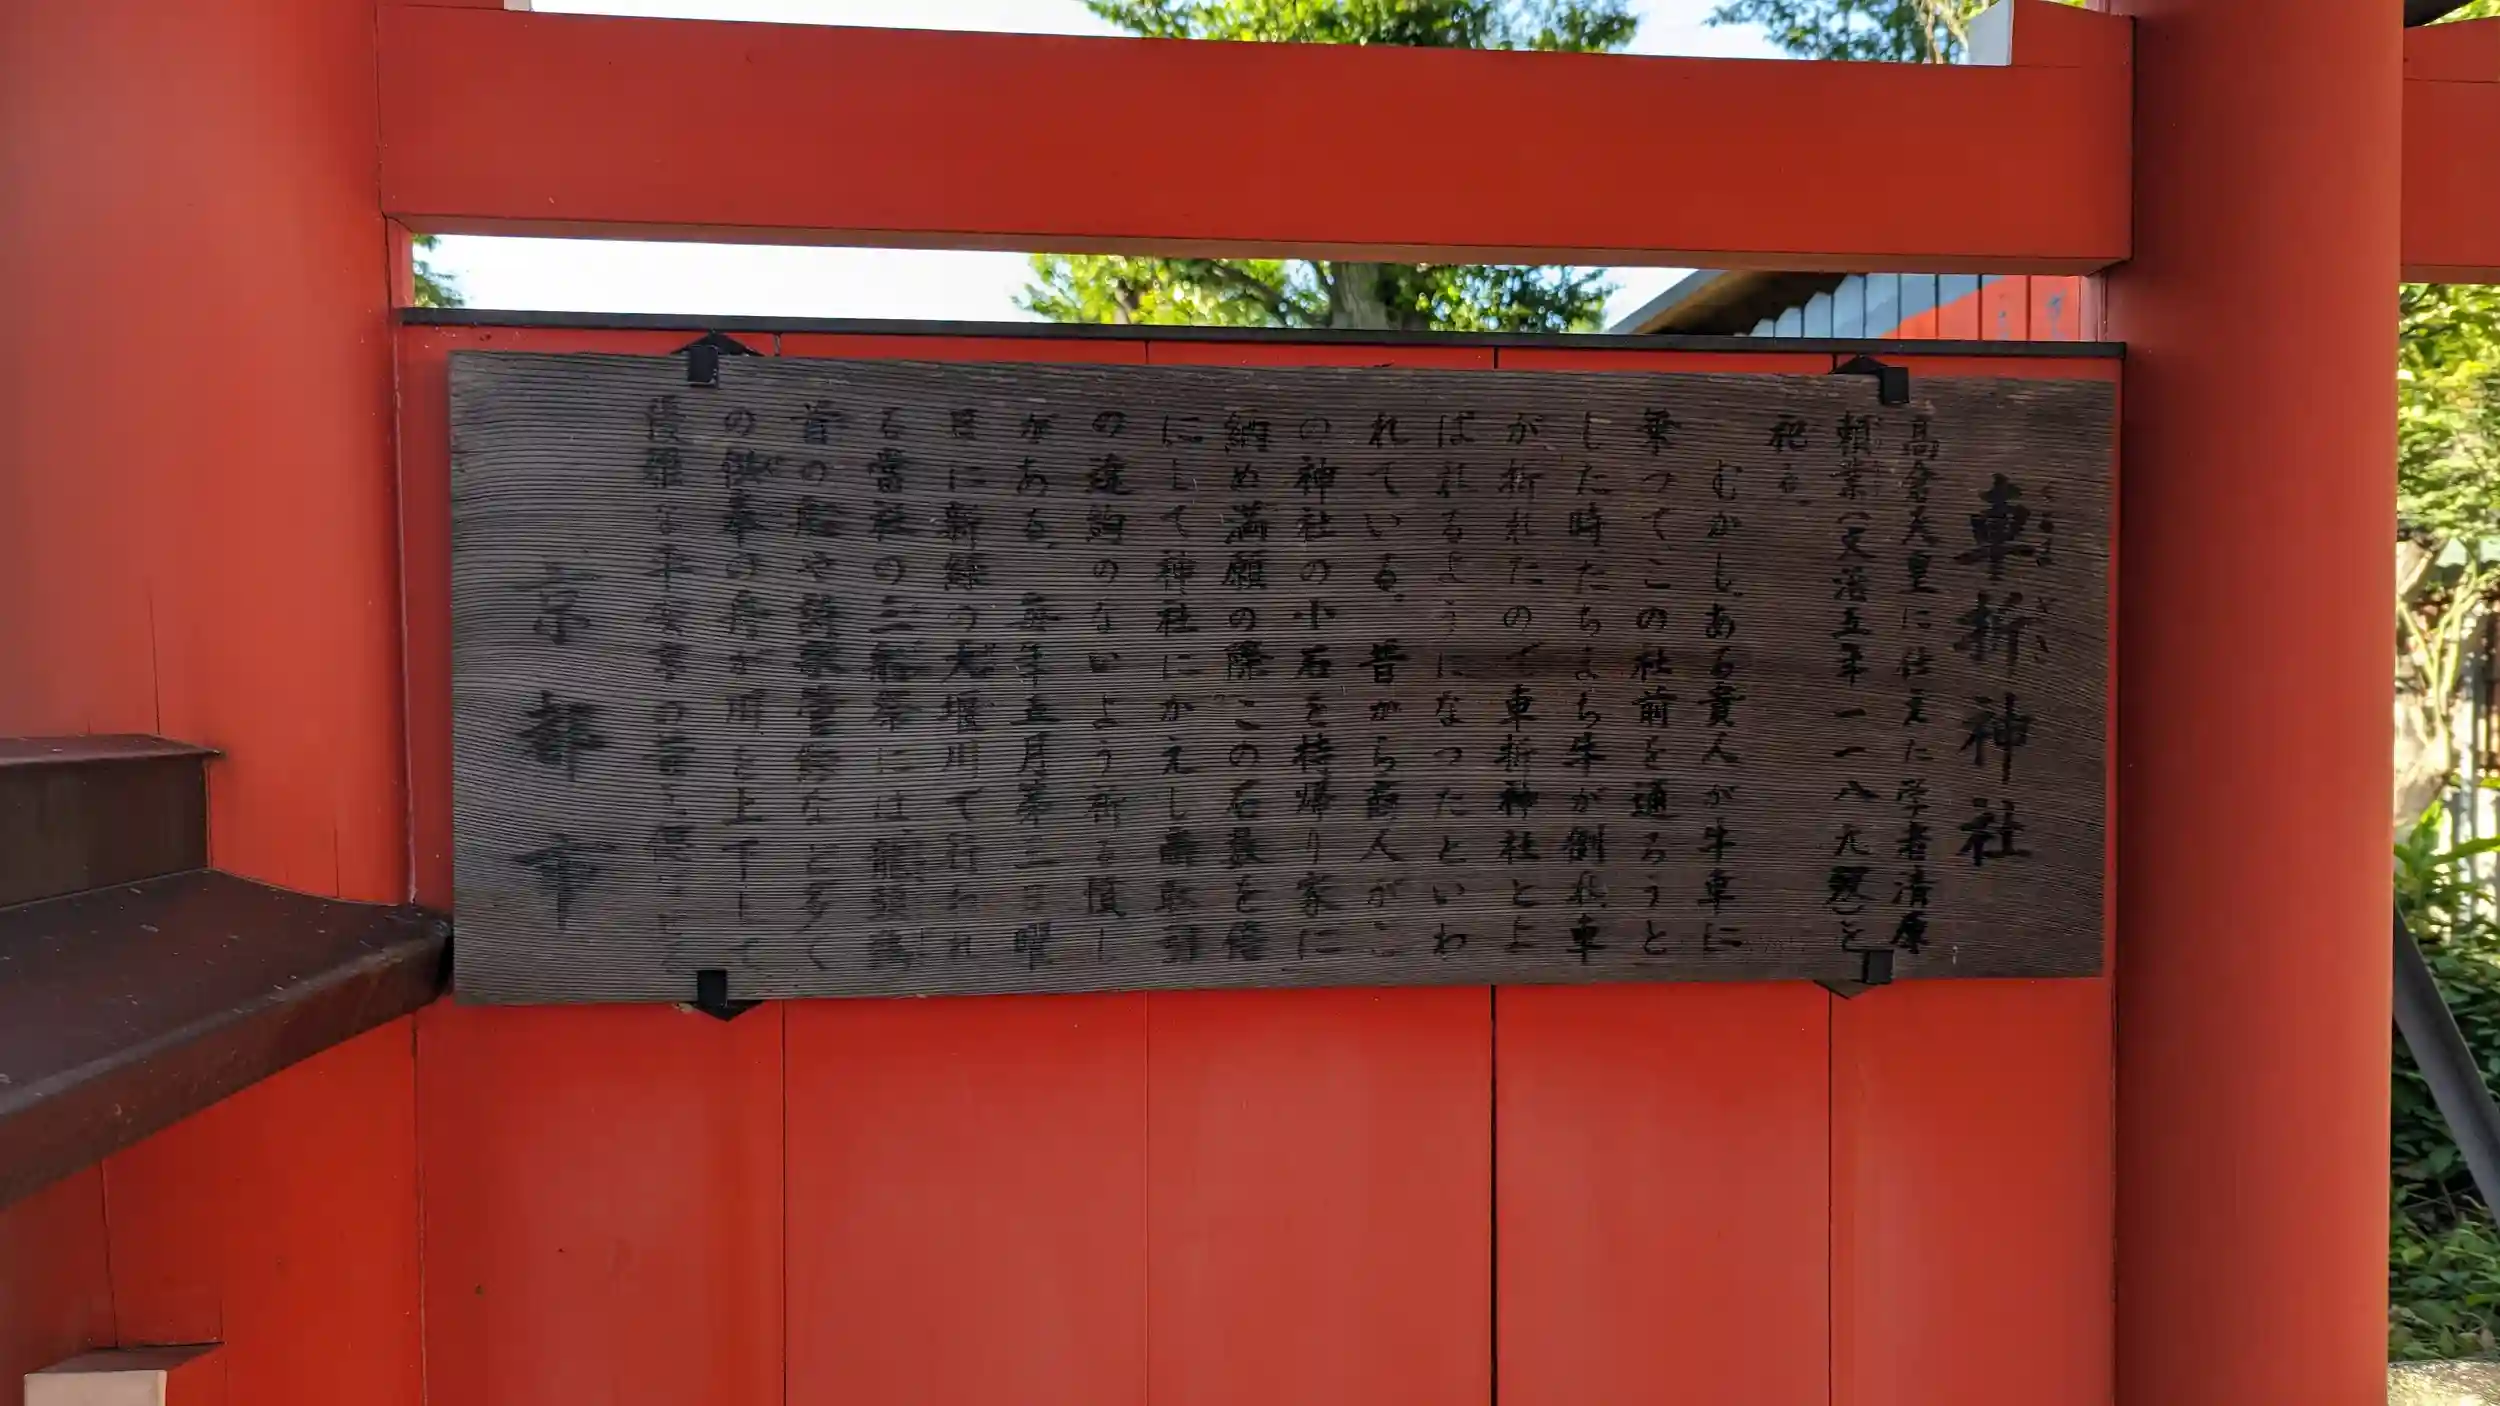 車折神社
くるまざき
高倉天皇に仕えた学者清原
頼業(文治五年一一八九歿)を
祀る。
むかし、ある貴人が牛車に
乗つて、この社前を通ろうと
した時たちまち牛が倒れ車
が折れたので車折神社とよ
ばれるようになつたといわ
れている。昔から商人がこ
の神社の小石を持帰り家に
納め満願の際この石数を倍
にして神社にかえし商取引
の違約のないよう祈る慣し
がある。毎年五月第三日曜
日に新緑の大堰川で行われ
る當社の三船祭には龍頭鷁
首の船や詩歌管絃など多く
の供奉の舟が川を上下して
優雅な平安亭の昔を偲ばせる
京都市